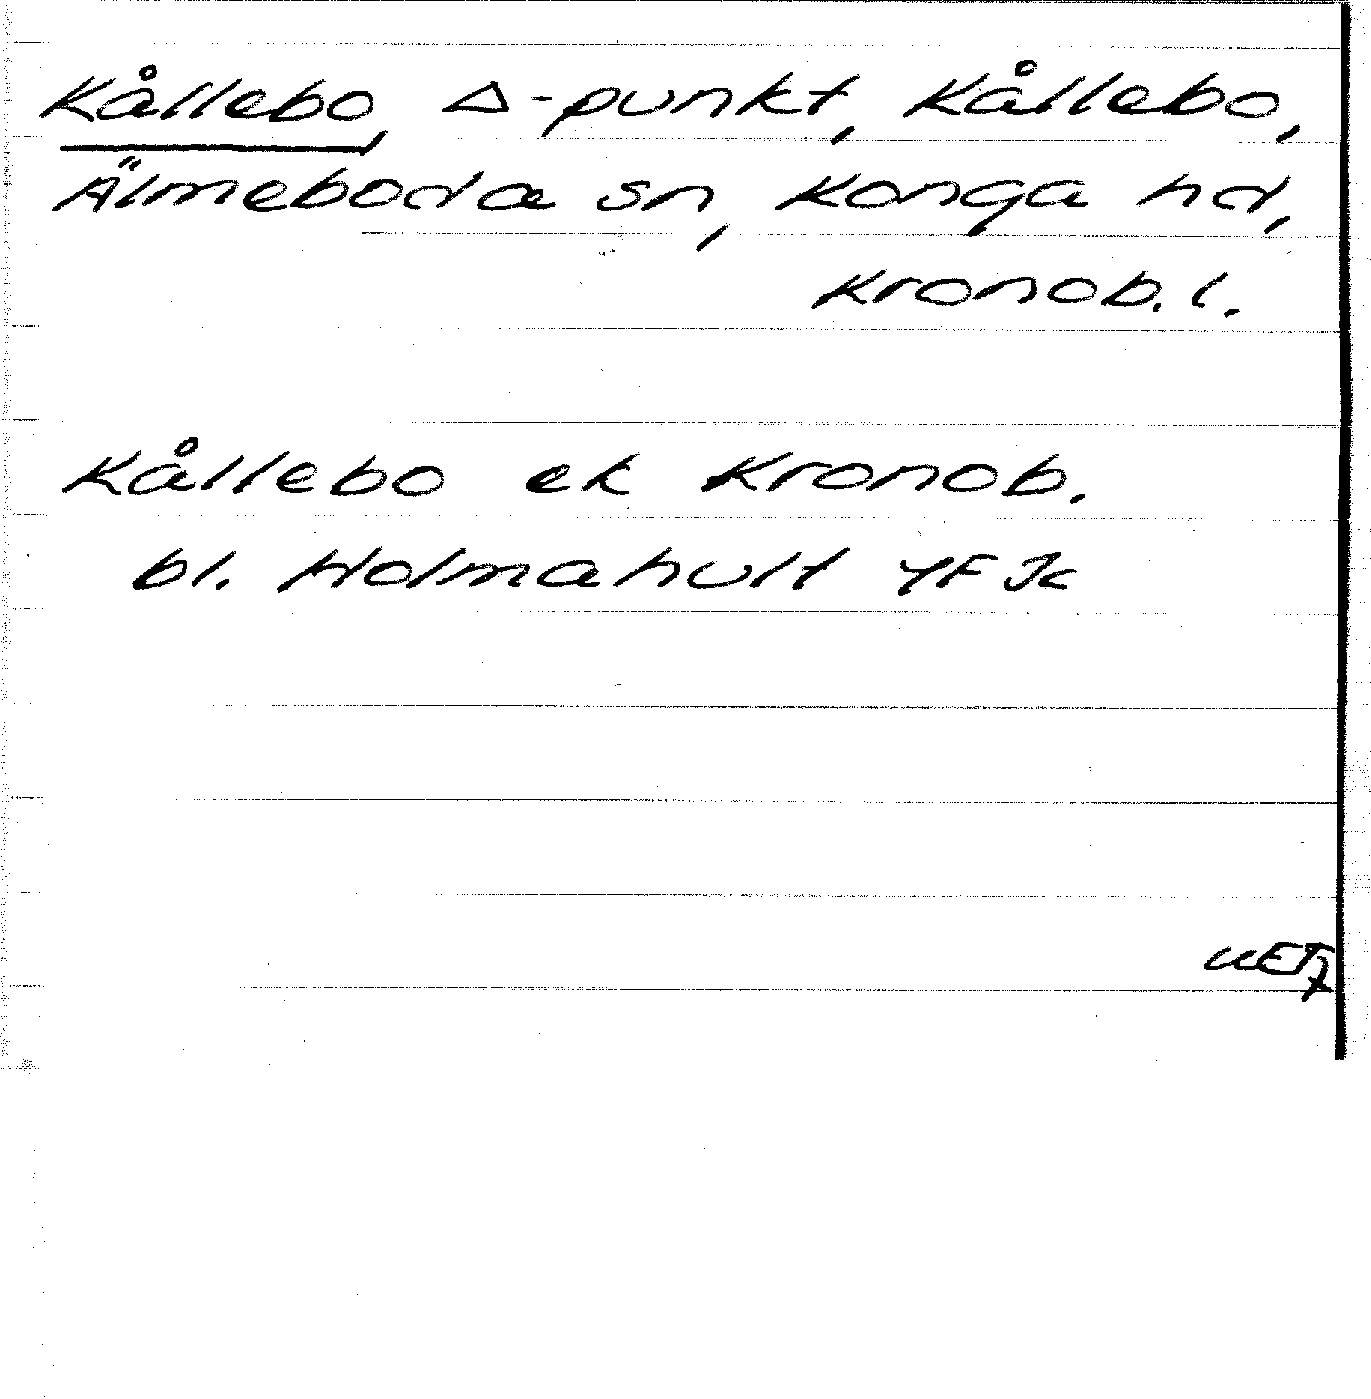 Kållebo, Δ-punkt, Kållebo,
Älmeboda sn, Konga hd,
Kronob. l.
Kållebo ek Kronob.
bl. Holmahult 4F Jc